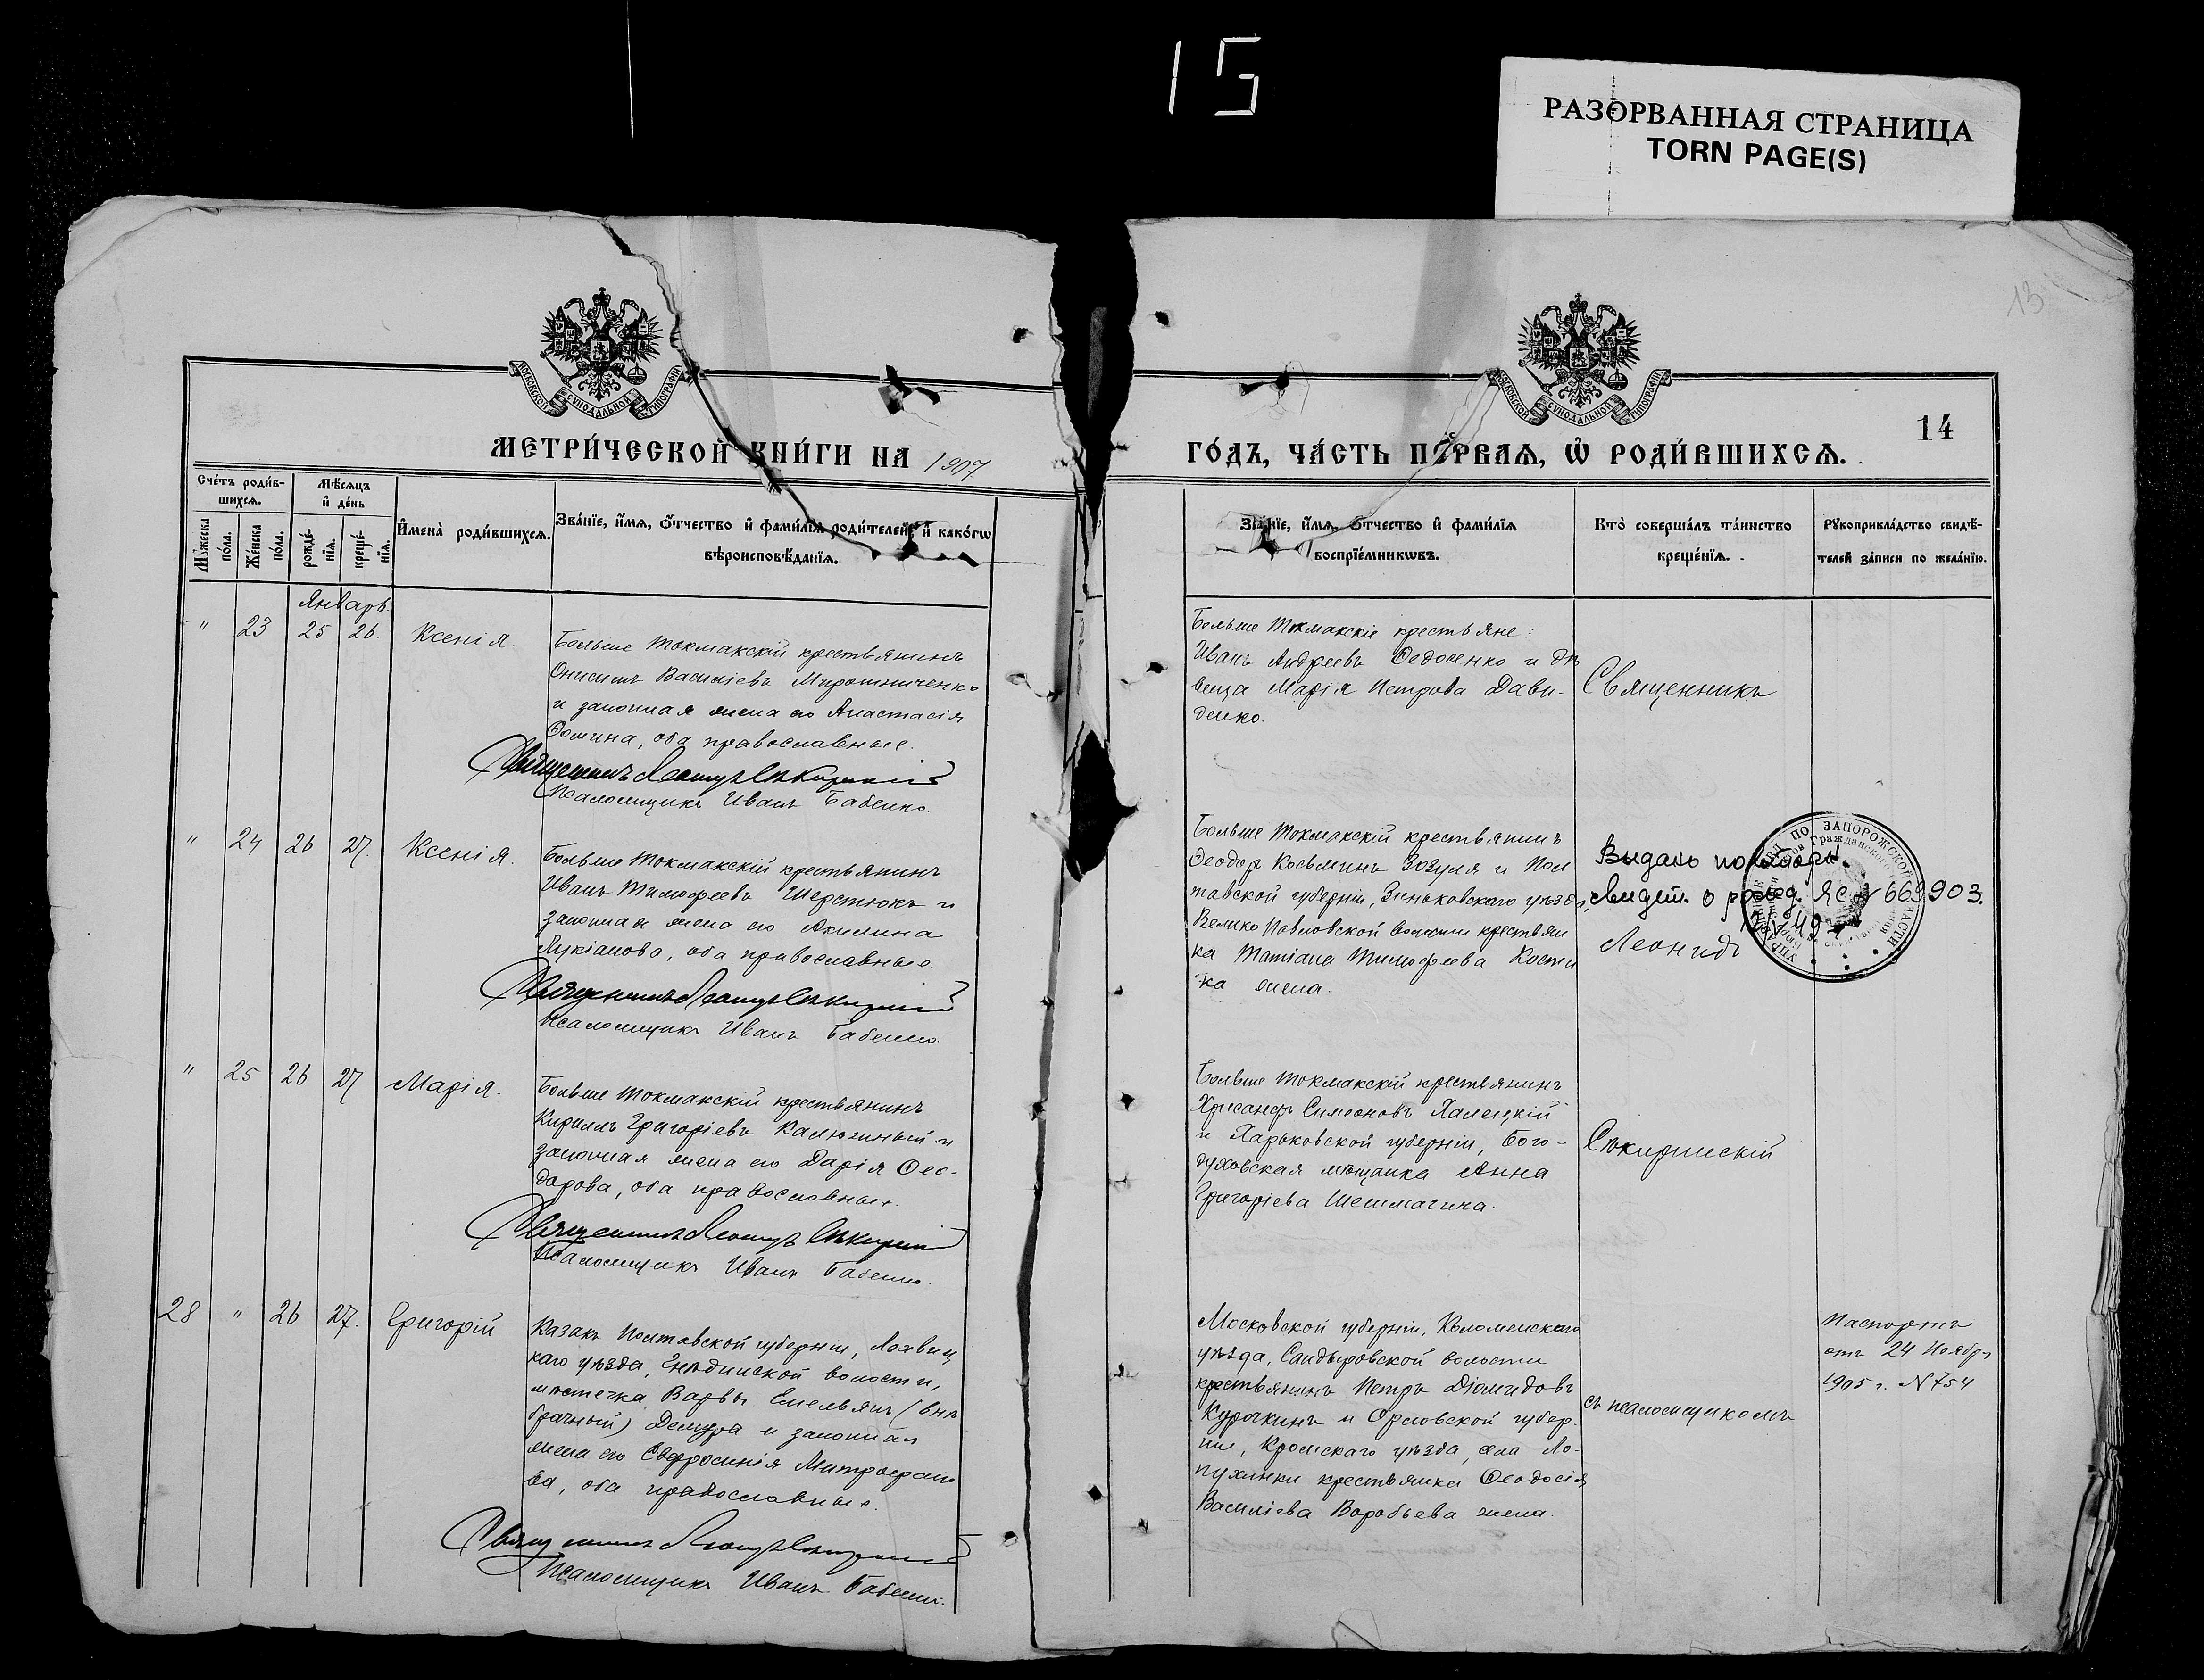 15
РАЗОРВАННАЯ СТРАНИЦА
TORN PAGE(S)
13
МОСКОВСКОЙ СѴНОДАЛЬНОЙ ТИПОГРАФІИ
МОСКОВСКОЙ СѴНОДАЛЬНОЙ ТИПОГРАФІИ
14
МЕТРИ́ЧЕСКОЙ КНИ́ГИ НА 1907
ГО́ДЪ, ЧА́СТЬ ПЕ́РВАѦ, Ѡ҆ РОДИ́ВШИХСѦ.
Сче́тъ роди́в-
шихсѧ.
Мѣ́сѧцъ
и҆ де́нь
Мꙋ́жеска
по́ла.
Же́нска
по́ла.
рожде́-
нїѧ.
креще́-
нїѧ.
И҆мена̀ роди́вшихсѧ.
Зва́нїе, и҆́мѧ, ѻ҆́тчество и҆ фами́лїѧ роди́телей, и҆ како́гѡ
вѣроисповѣ́данїѧ.
Зва́нїе, и҆́мѧ, ѻ҆́тчество и҆ фами́лїѧ
воспрїе́мникѡвъ.
Кто̀ соверша́лъ та́инство
креще́нїѧ.
Рꙋкоприкла́дство свидѣ́-
телей за́писи по жела́нїю.
Январь.
" 23 25 26. Ксенія.
Больше Токмакскій крестьянинъ
Онисимъ Василіевъ Мирошниченко
и законная жена его Анастасія
Фомина, оба православные.
Священникъ Леонидъ Сѣкиринскій
Псаломщикъ Иванъ Бабенко.
Больше Токмакскіе крестьяне:
Иванъ Андреевъ Федосенко и дѣ
вица Марія Петрова Дави-
денко.
Священникъ
" 24 26 27. Ксенія.
Больше Токмакскій крестьянинъ
Иванъ Тимофеевъ Шерстюкъ и
законная жена его Акилина
Лукіанова, оба православные.
Священникъ Леонидъ Сѣкиринскій
Псаломщикъ Иванъ Бабенко.
Больше Токмакскій крестьянинъ
Феодоръ Козьминъ Зозуля и Пол
тавской губерніи, Зиньковскаго уѣзда,
Велико Павловской волости крестьян
ка Татіана Тимофеева Кости
ка жена.
Выдано повторн.
свидет. о рожд. ЯС № 669903.
Леонидъ
УПРАВЛЕНИЕ МВД ПО ЗАПОРОЖСКОЙ ОБЛАСТИ
" 25 26 27 Марія.
Больше Токмакский крестьянинъ
Кириллъ Григоріевъ Калюжный и
законная жена его Дарія Фео-
дорова, оба православные.
Священникъ Леонидъ Сѣкиринскій
Псаломщикъ Иванъ Бабенко.
Больше Токмакскій крестьянинъ
Хрисанфъ Симеоновъ Халецкій
и Харьковской губерніи, Бого-
духовская мѣщанка Анна
Григоріева Шешмачина.
Сѣкиринскій
28 " 26 27. Григорій
Казакъ Полтавской губерніи, Лохвиц
каго уѣзда, Гнѣдинской волости,
мѣстечка Варвы Емельянъ (внѣ
брачный) Демура и законная
жена его Евфросинія Митрофано
ва, оба православные.
Священникъ Леонидъ Сѣкиринскій
Псаломщикъ Иванъ Бабенко.
Московской губерніи, Коломенскаго
уѣзда, Сандыровской волости
крестьянинъ Петръ Діомидовъ
Курочкинъ и Орловской губер-
ніи, Кромскаго уѣзда, села Ло-
пухинки крестьянка Феодосія
Василіева Воробьева жена.
съ псаломщикомъ
Паспортъ
отъ 24 Ноябр
1905 г. № 754